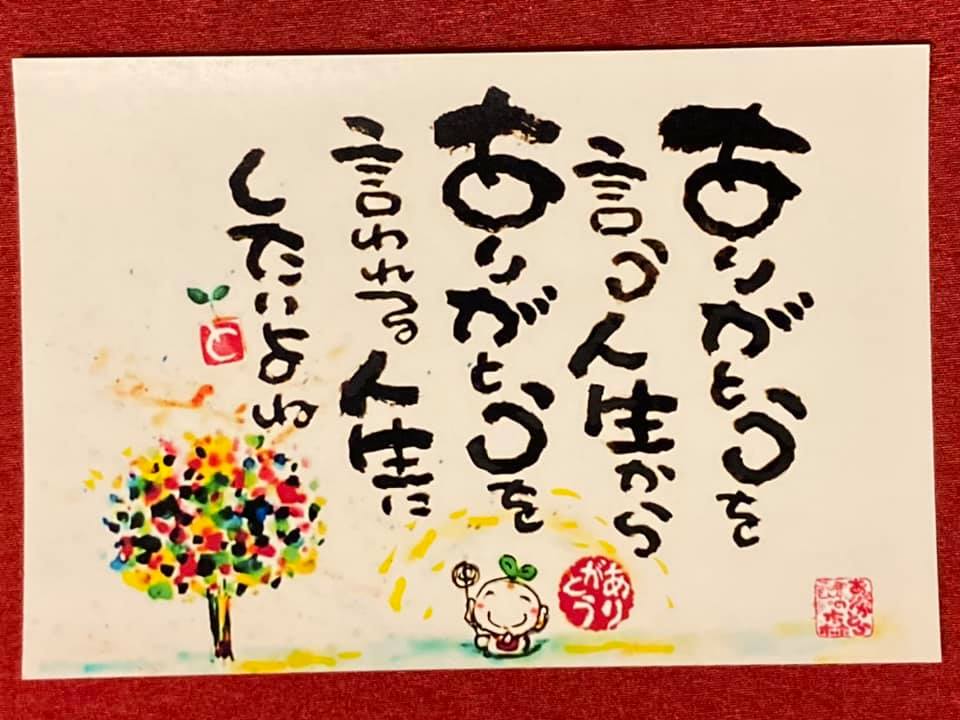 ありがとうを
言う人生から
ありがとうを
言われる人生に
したいよね
と
あり
がとう